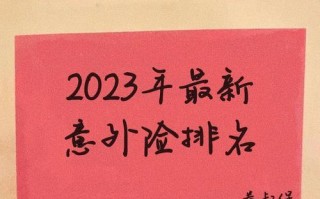 2023年最新
意外险排名